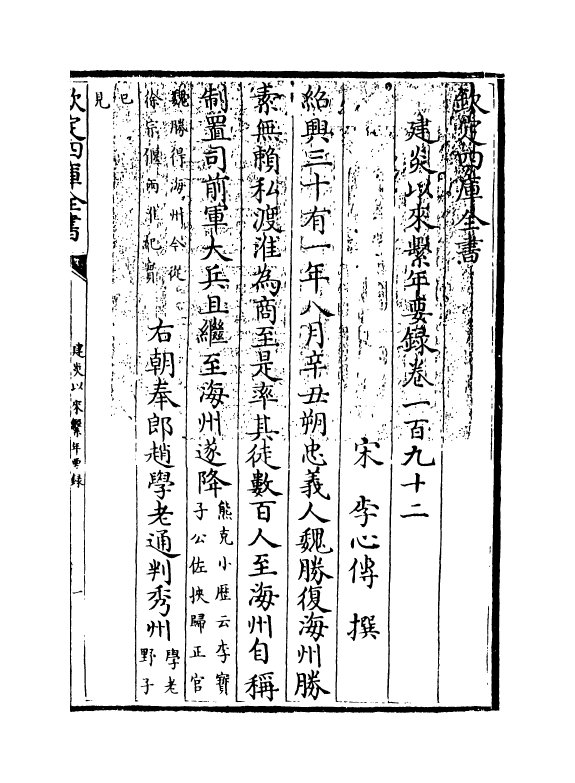 欽定四庫全書
建炎以來繫年要錄卷一百九十二
宋 李心傳 撰
紹興三十有一年八月辛丑朔忠義人魏勝復海州勝
素無賴私渡淮為商至是率其徒數百人至海州自稱
制置司前軍大兵且繼至海州遂降
熊克小歴云李寶
子公佐挾歸正官
魏勝得海州今從
徐宗偃兩淮紀實
右朝奉郎趙學老通判秀州
學老
野子
已
見
欽定四庫全書
建炎以來繫年要錄
一